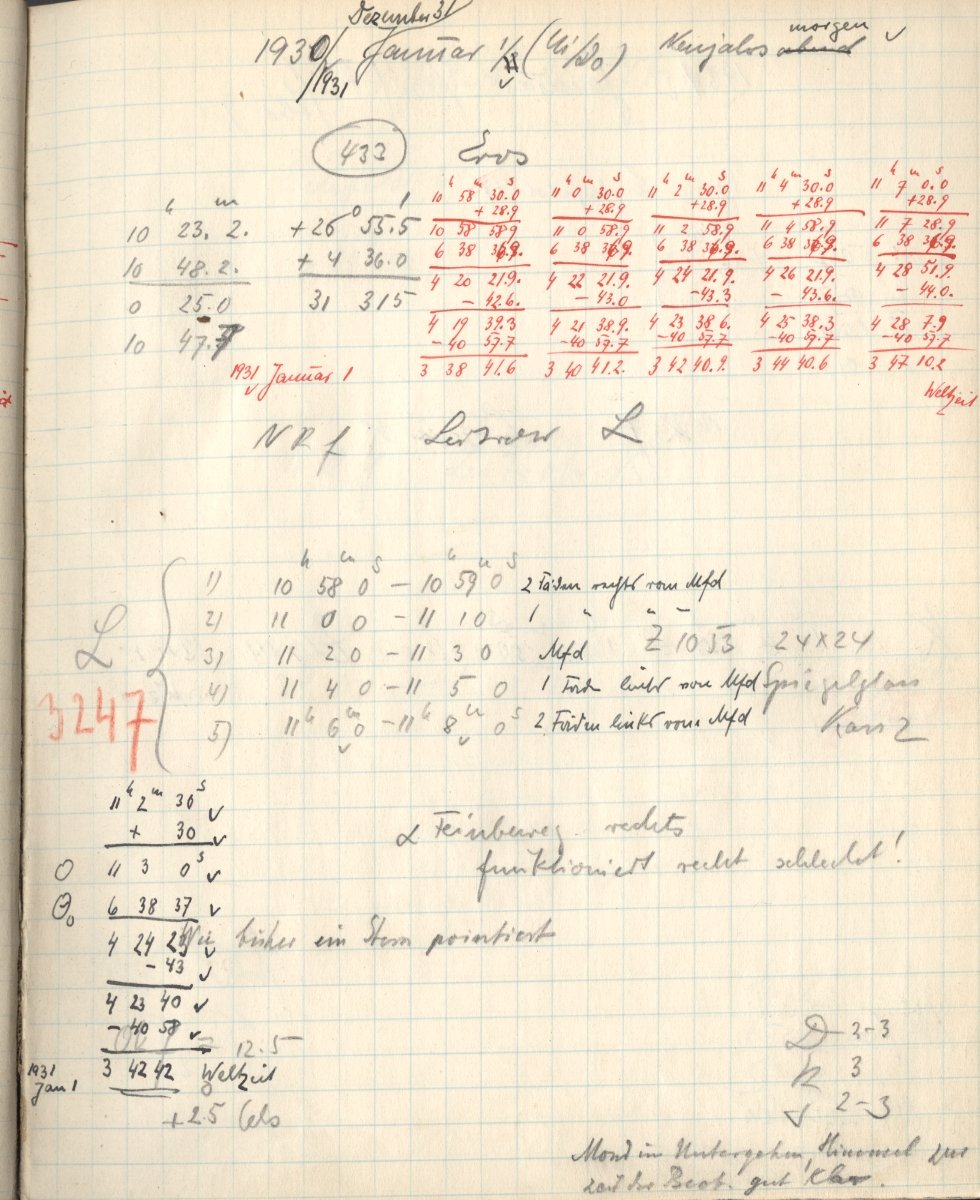 Dezember 31
1930/ Januar 1/ (Mi/Do) Neujahrs abend morgen ✓
/1931
433 Eros
h m
10 23. 2. +26° 55.5'
10 48. 2. + 4 36.0
0 25.0 31 31 5
10 47.7
h m s h m s h m s h m s h m s
10 58 30.0 11 0 30.0 11 2 30.0 11 4 30.0 11 7 0.0
+ 28.9 + 28.9 + 28.9 + 28.9 + 28.9
10 58 58.9 11 0 58.9 11 2 58.9 11 4 58.9 11 7 28.9
6 38 36.9. 6 38 36.9. 6 38 36.9. 6 38 36.9. 6 38 36.9.
4 20 21.9. 4 22 21.9. 4 24 21.9. 4 26 21.9. 4 28 51.9.
- 42.6. - 43.0 - 43.3 - 43.6. - 44.0.
4 19 39.3 4 21 38.9. 4 23 38 6. 4 25 38.3 4 28 7.9
-40 57.7 -40 57.7 -40 57.7 -40 57.7 -40 57.7
1931 Januar 1 3 38 41.6 3 40 41.2. 3 42 40.9. 3 44 40.6 3 47 10.2
Weltzeit
L
h m s h m s
1) 10 58 0 – 10 59 0 2 Fäden rechts vom Mfd
2) 11 0 0 – 11 1 0 1 " " –
3) 11 2 0 – 11 3 0 Mfd Z 1053 24×24
L 4) 11 4 0 – 11 5 0 1 Faden links vom Mfd Spiegelglas
3247 5) 11h 6m 0 – 11h 8m 0s 2 Fäden links vom Mfd
11h 2m 30s ✓
+ 30 ✓
α Feinbeweg. rechts
0 11 3 0s ✓
funktioniert recht schlecht!
θ₀ 6 38 37 ✓
4 24 23 ✓
bisher ein Stern pointiert
- 43 ✓
4 23 40 ✓
- 40 58 ✓
12.5
1931 Jan 1 3 42 42 Weltzeit
+2.5 Cels
2-3
3
2-3
Mond im Untergehen, Himmel zur
Zeit der Beob. gut klar.